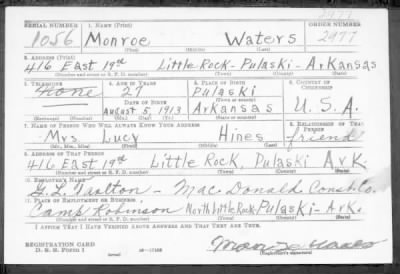 SERIAL NUMBER 1. NAME (Print) ORDER NUMBER
1056 Monroe Waters 2977
(First) (Middle) (Last)
2. ADDRESS (Print)
416 East 19th Little Rock - Pulaski - Arkansas
(Number and street or R. F. D. number) (Town) (County) (State)
3. TELEPHONE 4. AGE IN YEARS 5. PLACE OF BIRTH 6. COUNTRY OF CITIZENSHIP
none 27 Pulaski
DATE OF BIRTH
August 5, 1913 Arkansas U.S.A.
(Exchange) (Number) (Mo.) (Day) (Yr.) (State or country)
7. NAME OF PERSON WHO WILL ALWAYS KNOW YOUR ADDRESS 8. RELATIONSHIP OF THAT PERSON
Mrs Lucy Hines friend
(Mr., Mrs., Miss) (First) (Middle) (Last)
9. ADDRESS OF THAT PERSON
416 East 19th Little Rock, Pulaski Ark.
(Number and street or R. F. D. number) (Town) (County) (State)
10. EMPLOYER'S NAME
G. L. - Mac Donald Const. Co.
11. PLACE OF EMPLOYMENT OR BUSINESS
Camp Robinson North Little Rock - Pulaski - Ark.
(Number and street or R. F. D. number) (Town) (County) (State)
I AFFIRM THAT I HAVE VERIFIED ABOVE ANSWERS AND THAT THEY ARE TRUE.
REGISTRATION CARD
D. S. S. Form 1
(over) (Registrant's signature)